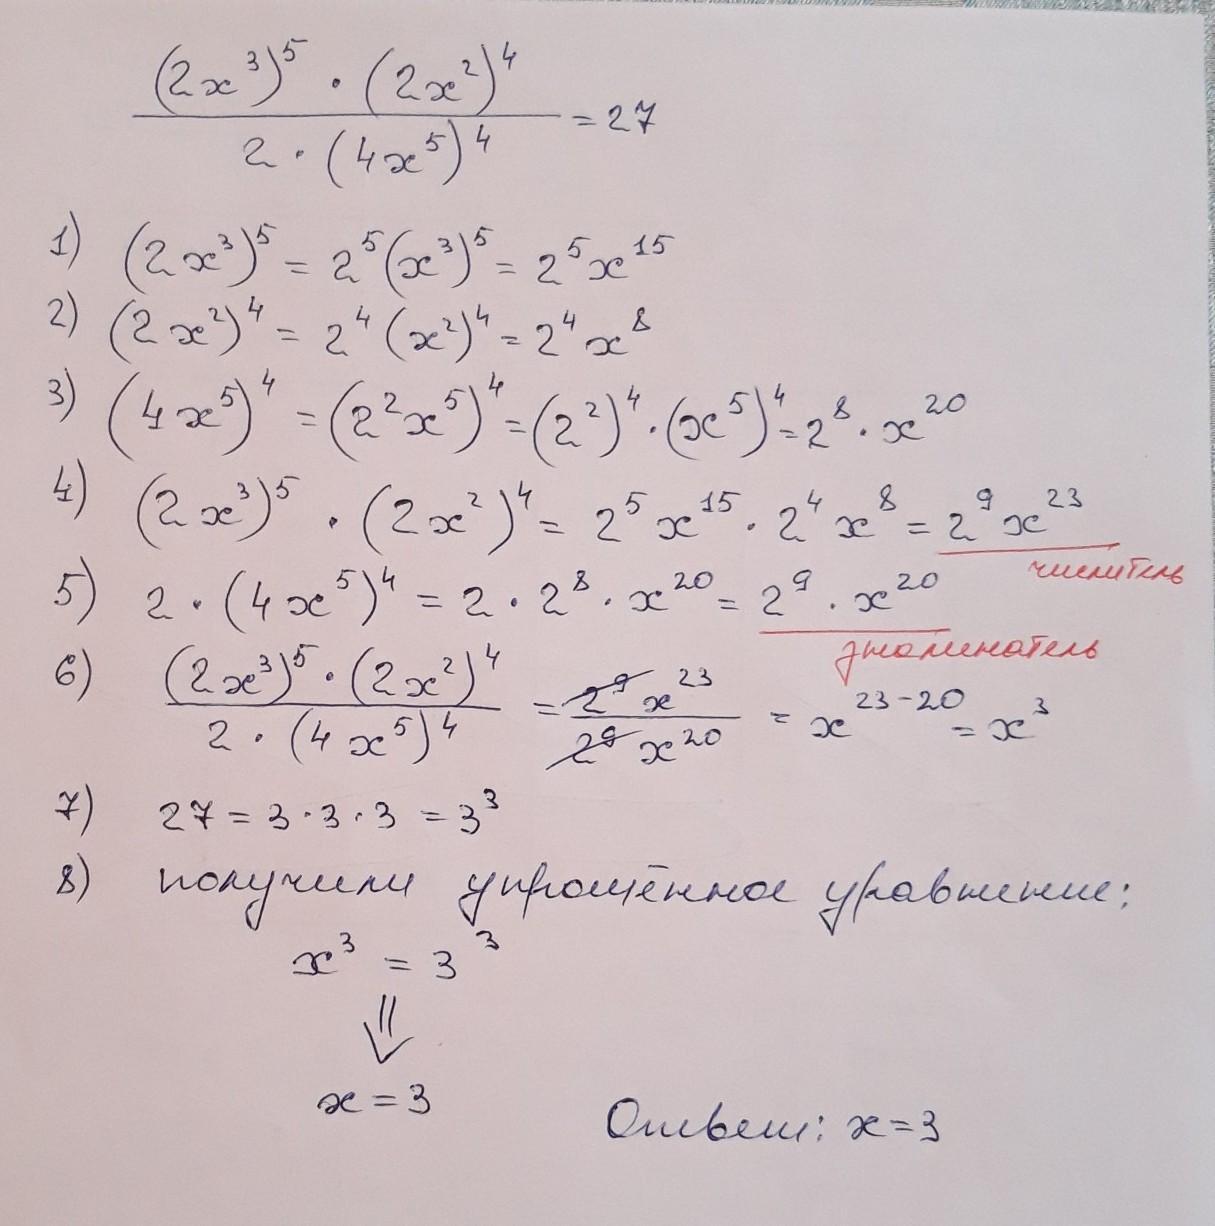 (2x³)⁵ · (2x²)⁴
2 · (4x⁵)⁴ = 27
1) (2x³)⁵ = 2⁵(x³)⁵ = 2⁵x¹⁵
2) (2x²)⁴ = 2⁴(x²)⁴ = 2⁴x⁸
3) (4x⁵)⁴ = (2²x⁵)⁴ = (2²)⁴ · (x⁵)⁴ = 2⁸ · x²⁰
4) (2x³)⁵ · (2x²)⁴ = 2⁵x¹⁵ · 2⁴x⁸ = 2⁹x²³
числитель
5) 2 · (4x⁵)⁴ = 2 · 2⁸ · x²⁰ = 2⁹ · x²⁰
знаменатель
6) (2x³)⁵ · (2x²)⁴ / 2 · (4x⁵)⁴ = 2⁹x²³ / 2⁹x²⁰ = x²³⁻²⁰ = x³
7) 27 = 3 · 3 · 3 = 3³
8) получили упрощённое уравнение:
x³ = 3³
⇓
x = 3
Ответ: x = 3